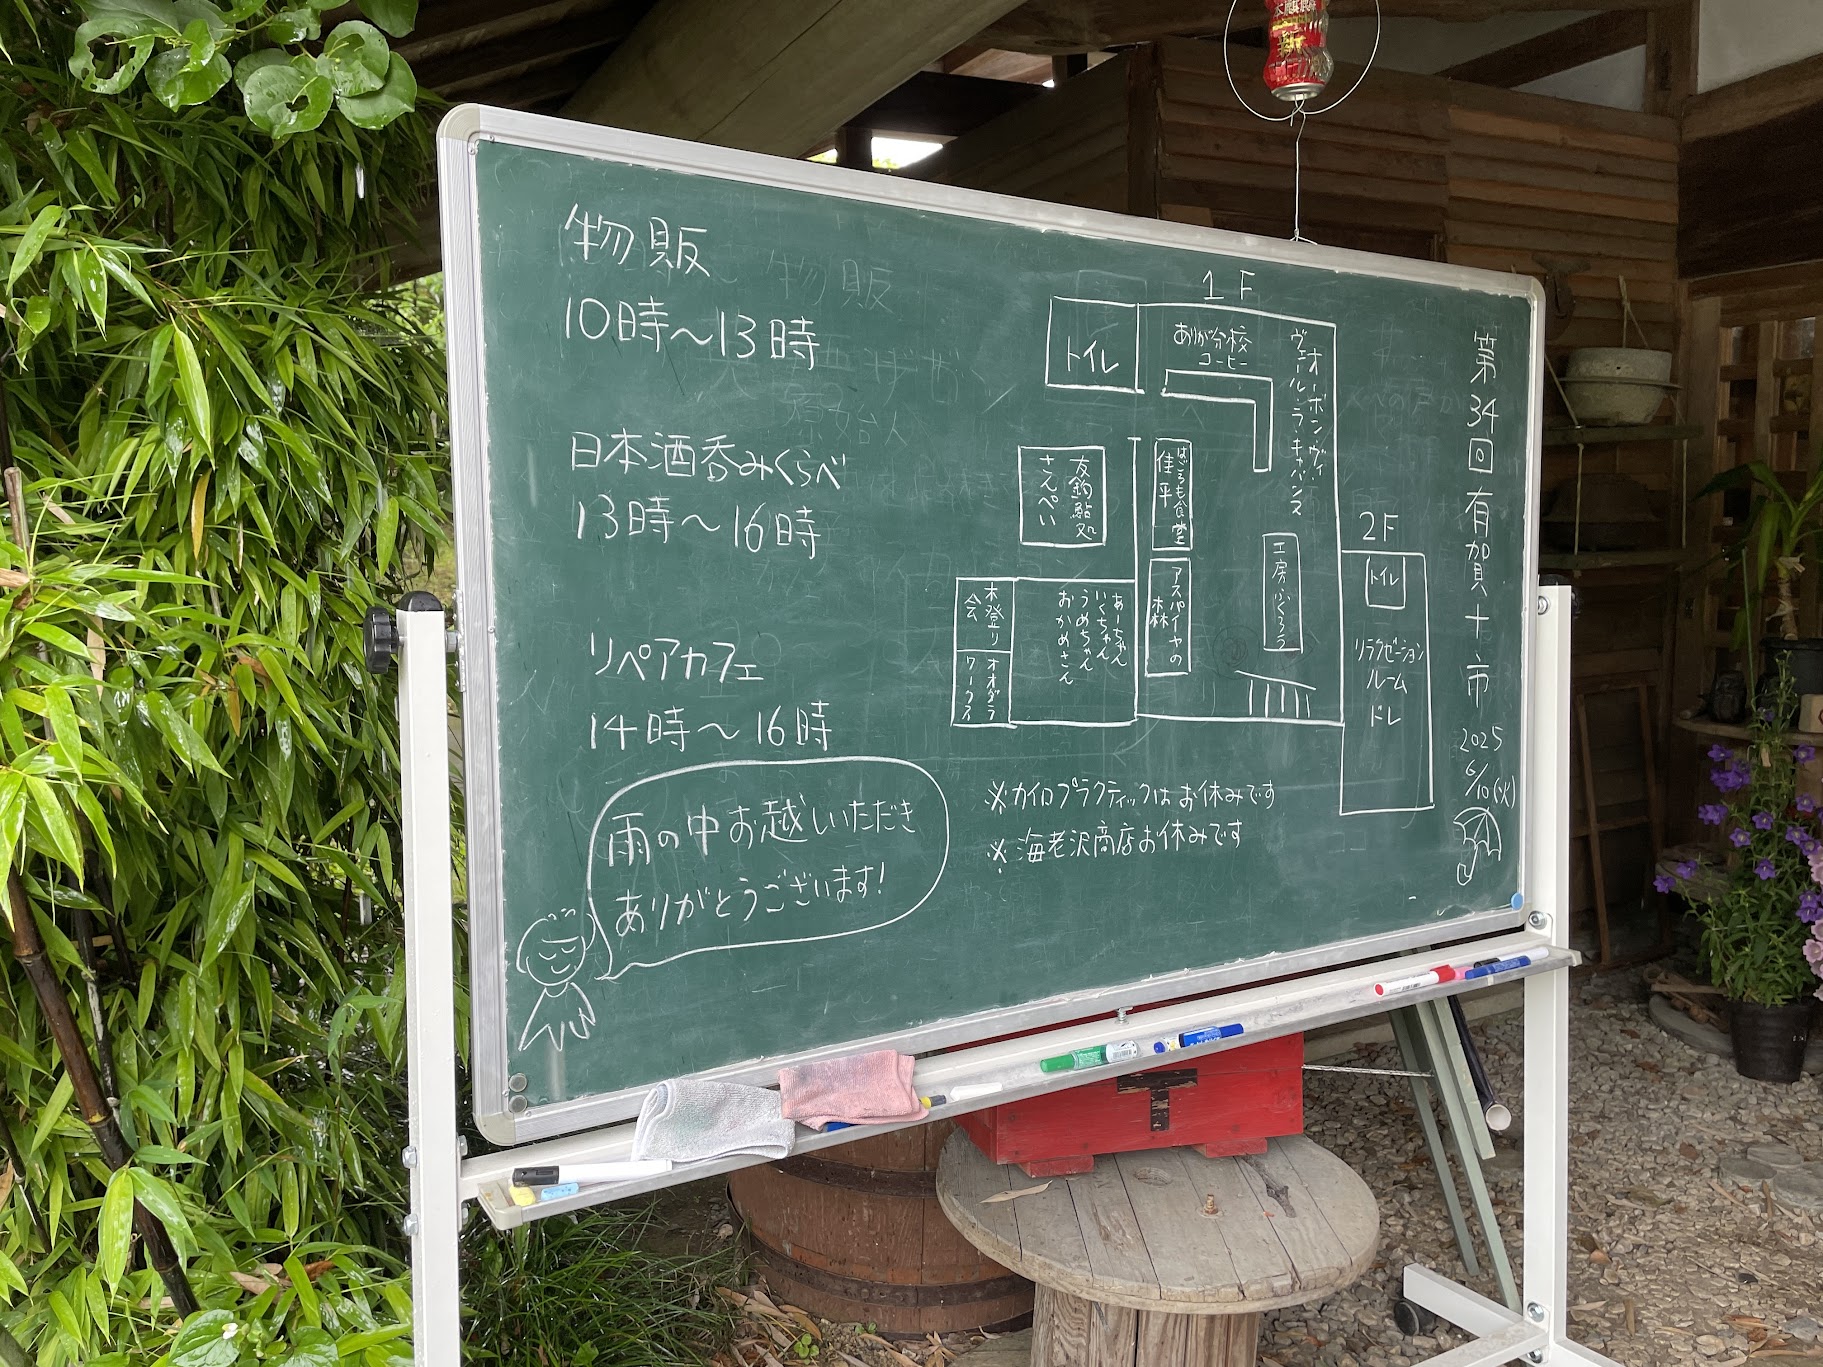 第34回 有賀十市
2025
6/10(火)
物販
10時〜13時
日本酒呑みくらべ
13時〜16時
リペアカフェ
14時〜16時
雨の中お越しいただき
ありがとうございます!
1F
トイレ
ありが分校
コーヒー
オーボン・ヴィ・
ヴェール・ラ・キャバンヌ
はごろも食堂
佳平
友釣鮎処
さんぺい
アスパイヤの
森
工房ふくろう
あーちゃん
いくちゃん
うめちゃん
おかめさん
木登り
会
オオダラ
ワークス
2F
トイレ
リラクゼーション
ルーム
ドレ
※カイロプラクティックはお休みです
※海老沢商店お休みです
物販
原始人